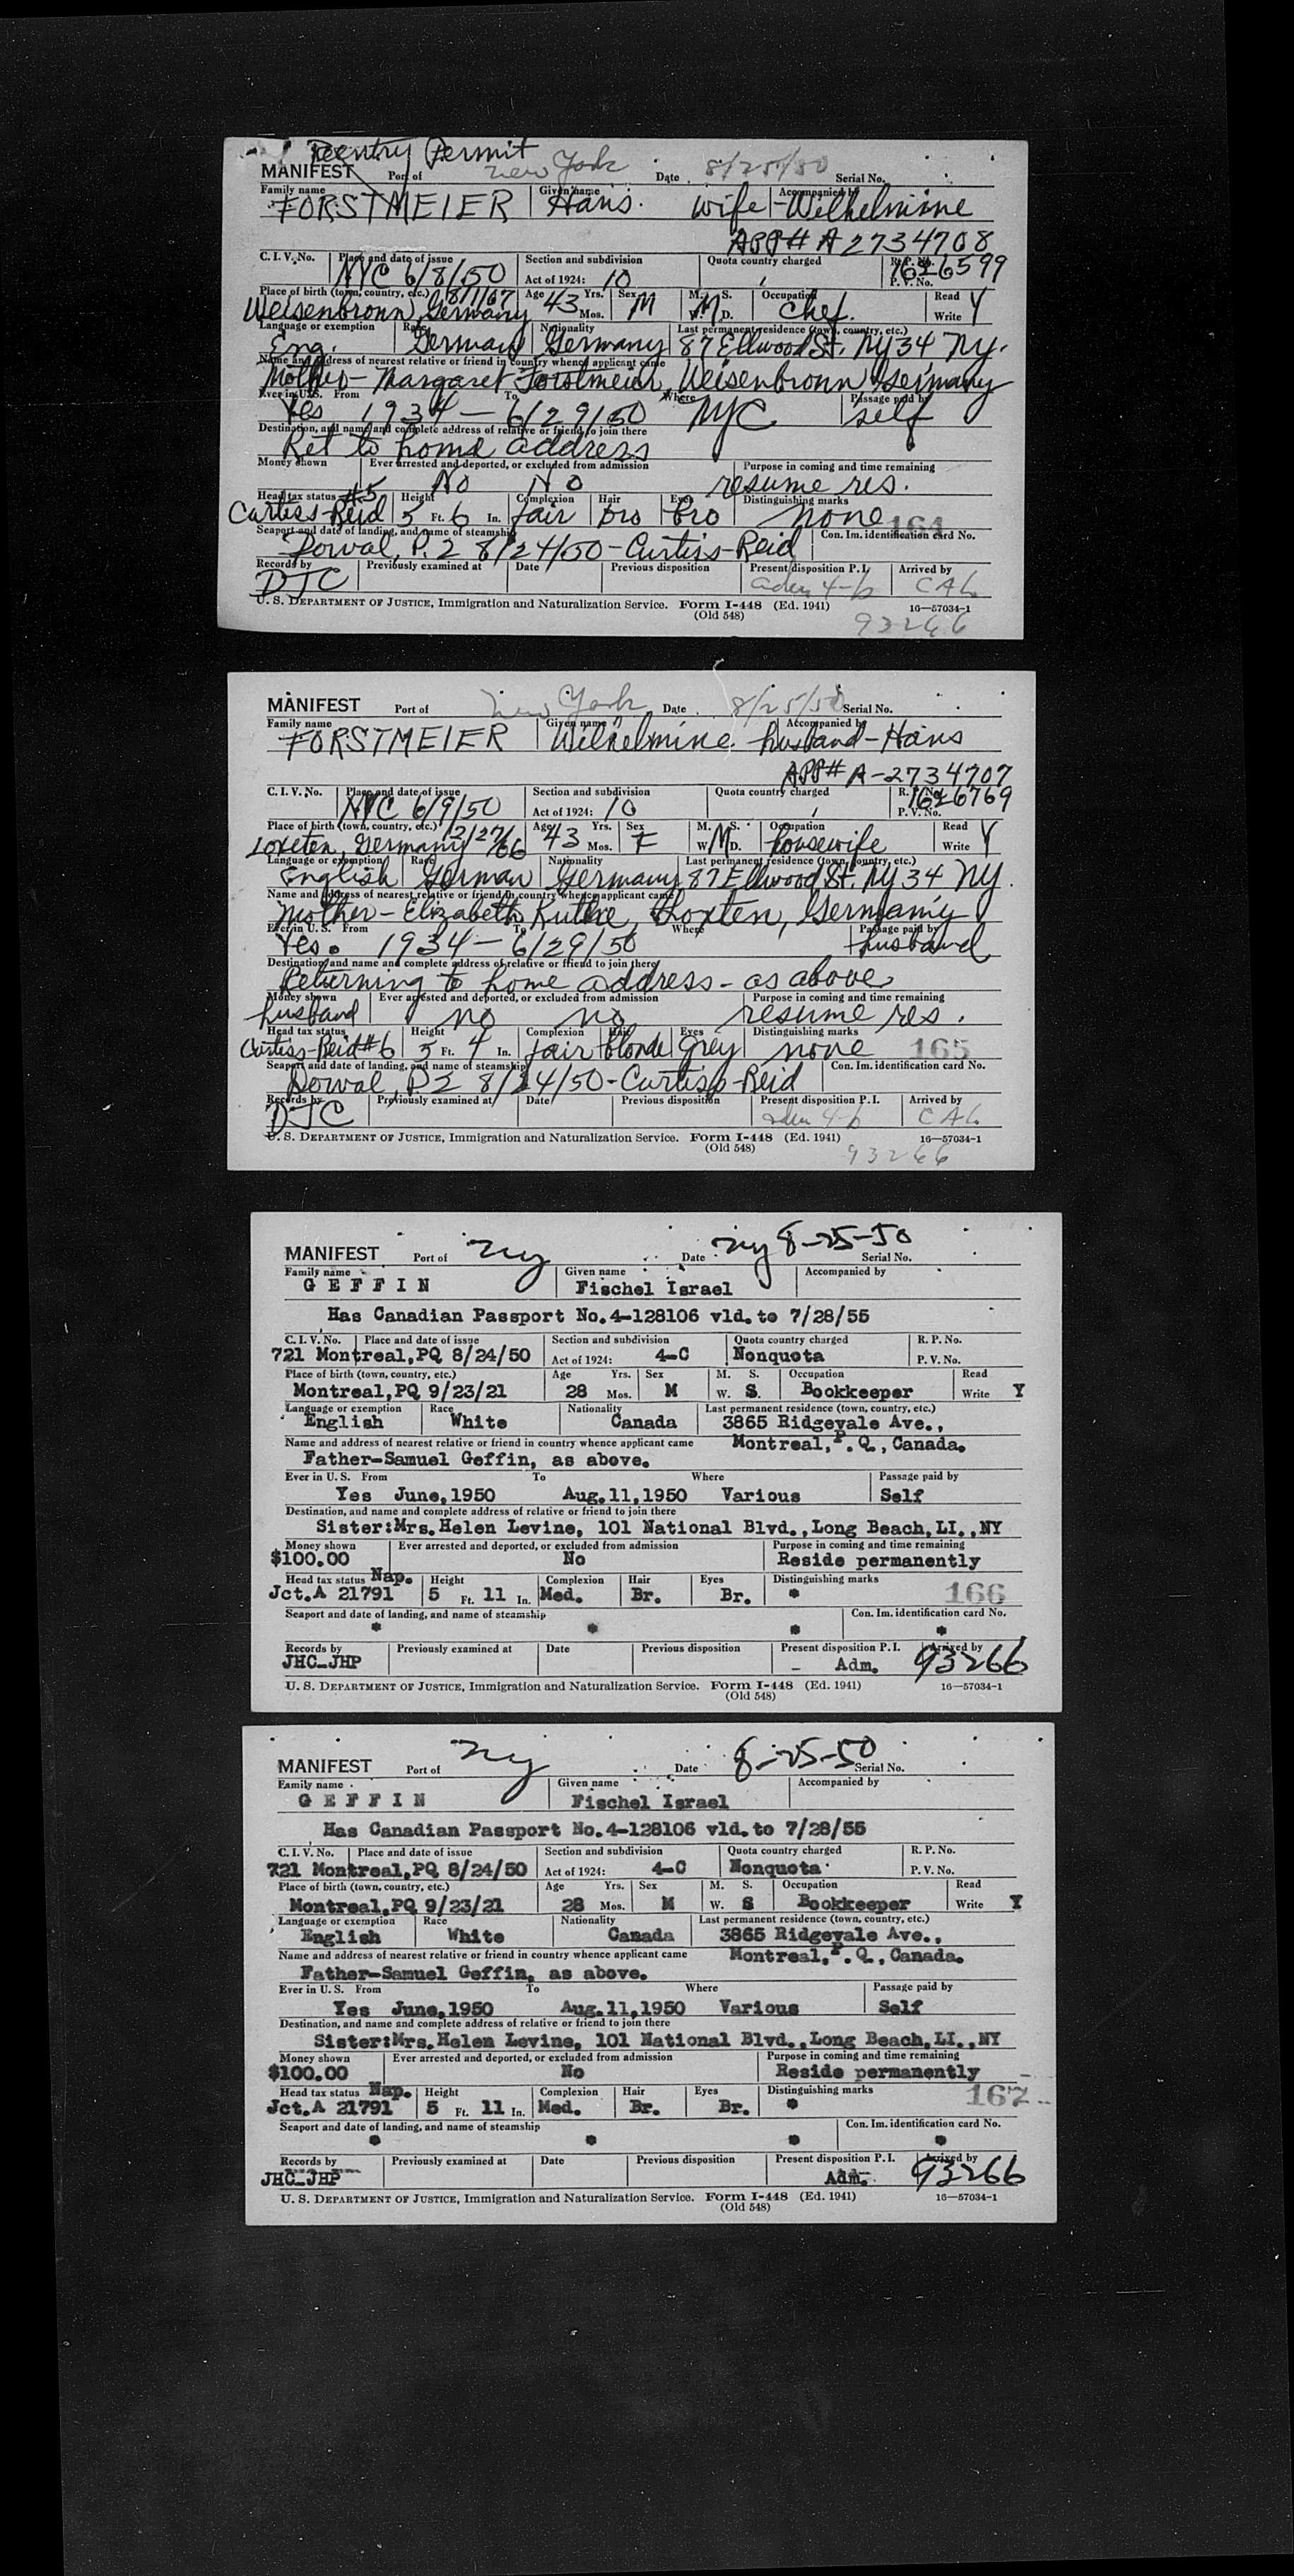 Reentry Permit
MANIFEST Port of New York Date 8/25/50 Serial No.
Family name Given name Accompanied by
FORSTMEIER Hans. wife-Wilhelmine
APP# A2734708
C. I. V. No. Place and date of issue Section and subdivision Quota country charged R. P. No.
NYC 6/8/50 Act of 1924: 10 1626599
P. V. No.
Place of birth (town, country, etc.) Age 43 Yrs. Sex M. S. Occupation Read Y
Weisenbronn, Germany Mos. M W. M D. Chef. Write
Language or exemption Race Nationality Last permanent residence (town, country, etc.)
Eng. German Germany 87 Ellwood St. NY 34 NY.
Name and address of nearest relative or friend in country whence applicant came
Mother - Margaret Forstmeier, Weisenbronn Germany
Ever in U.S. From To Where Passage paid by
Yes 1934 - 6/29/50 NYC self
Destination, and name and complete address of relative or friend to join there
Ret to home address
Money shown Ever arrested and deported, or excluded from admission Purpose in coming and time remaining
No No resume res.
Head tax status #5 Height Complexion Hair Eyes Distinguishing marks
Curtiss-Reid 5 Ft. 6 In. fair bro bro none 164
Seaport and date of landing, and name of steamship Con. Im. identification card No.
Dorval, P.Q 8/24/50-Curtiss-Reid
Records by Previously examined at Date Previous disposition Present disposition P. I. Arrived by
DJC adm 4-b CAL
U. S. DEPARTMENT OF JUSTICE, Immigration and Naturalization Service. Form I-448 (Ed. 1941) 16—57034-1
(Old 548) 93266
MANIFEST Port of New York Date 8/25/50 Serial No.
Family name Given name Accompanied by
FORSTMEIER Wilhelmine husband-Hans
APP# A-2734707
C. I. V. No. Place and date of issue Section and subdivision Quota country charged R. P. No.
NYC 6/9/50 Act of 1924: 10 1626769
P. V. No.
Place of birth (town, country, etc.) Age Yrs. Sex M. S. Occupation Read
Loxten, Germany 43 Mos. F W. M D. housewife Write Y
Language or exemption Race Nationality Last permanent residence (town, country, etc.)
English German Germany 87 Ellwood St. NY 34 NY.
Name and address of nearest relative or friend in country whence applicant came
Mother - Elizabeth Loxten, Germany
Ever in U. S. From To Where Passage paid by
Yes. 1934 - 6/29/50 husband
Destination, and name and complete address of relative or friend to join there
Returning to home address - as above
Money shown Ever arrested and deported, or excluded from admission Purpose in coming and time remaining
husband no no resume res.
Head tax status Height Complexion Hair Eyes Distinguishing marks
Curtiss-Reid #6 5 Ft. 4 In. fair blonde Grey none 165
Seaport and date of landing, and name of steamship Con. Im. identification card No.
Dorval, PQ 8/24/50-Curtiss-Reid
Records by Previously examined at Date Previous disposition Present disposition P. I. Arrived by
DJC adm 4-b CAL
U. S. DEPARTMENT OF JUSTICE, Immigration and Naturalization Service. Form I-448 (Ed. 1941) 16—57034-1
(Old 548) 93266
MANIFEST Port of NY Date NY 8-25-50 Serial No.
Family name Given name Accompanied by
GEFFIN Fischel Israel
Has Canadian Passport No.4-128106 vld.to 7/28/55
C. I. V. No. Place and date of issue Section and subdivision Quota country charged R. P. No.
721 Montreal,PQ 8/24/50 Act of 1924: 4-C Nonquota P. V. No.
Place of birth (town, country, etc.) Age Yrs. Sex M. S. Occupation Read
Montreal,PQ 9/23/21 28 Mos. M W. S. Bookkeeper Write Y
Language or exemption Race Nationality Last permanent residence (town, country, etc.)
English White Canada 3865 Ridgevale Ave.,
Name and address of nearest relative or friend in country whence applicant came Montreal,P.Q.,Canada.
Father-Samuel Geffin, as above.
Ever in U. S. From To Where Passage paid by
Yes June,1950 Aug.11,1950 Various Self
Destination, and name and complete address of relative or friend to join there
Sister:Mrs.Helen Levine, 101 National Blvd.,Long Beach,LI.,NY
Money shown Ever arrested and deported, or excluded from admission Purpose in coming and time remaining
$100.00 No Reside permanently
Head tax status Nap. Height Complexion Hair Eyes Distinguishing marks
Jct.A 21791 5 Ft. 11 In. Med. Br. Br. * 166
Seaport and date of landing, and name of steamship Con. Im. identification card No.
* * * *
Records by Previously examined at Date Previous disposition Present disposition P. I. Arrived by
JHC-JHP - Adm. 93266
U. S. DEPARTMENT OF JUSTICE, Immigration and Naturalization Service. Form I-448 (Ed. 1941) 16—57034-1
(Old 548)
MANIFEST Port of NY Date 8-25-50 Serial No.
Family name Given name Accompanied by
GEFFIN Fischel Israel
Has Canadian Passport No.4-128106 vld.to 7/28/55
C. I. V. No. Place and date of issue Section and subdivision Quota country charged R. P. No.
721 Montreal,PQ 8/24/50 Act of 1924: 4-C Nonquota P. V. No.
Place of birth (town, country, etc.) Age Yrs. Sex M. S. Occupation Read
Montreal,PQ 9/23/21 28 Mos. M W. S Bookkeeper Write Y
Language or exemption Race Nationality Last permanent residence (town, country, etc.)
English White Canada 3865 Ridgevale Ave.,
Name and address of nearest relative or friend in country whence applicant came Montreal,P.Q.,Canada.
Father-Samuel Geffin, as above.
Ever in U. S. From To Where Passage paid by
Yes June,1950 Aug.11,1950 Various Self
Destination, and name and complete address of relative or friend to join there
Sister:Mrs.Helen Levine, 101 National Blvd.,Long Beach,LI.,NY
Money shown Ever arrested and deported, or excluded from admission Purpose in coming and time remaining
$100.00 No Reside permanently
Head tax status Nap. Height Complexion Hair Eyes Distinguishing marks 167
Jct.A 21791 5 Ft. 11 In. Med. Br. Br. *
Seaport and date of landing, and name of steamship Con. Im. identification card No.
* * * *
Records by Previously examined at Date Previous disposition Present disposition P. I. Arrived by
JHC-JHP Adm. 93266
U. S. DEPARTMENT OF JUSTICE, Immigration and Naturalization Service. Form I-448 (Ed. 1941) 16—57034-1
(Old 548)